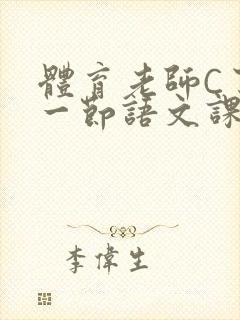 體育老師C
一節語文課
李偉生